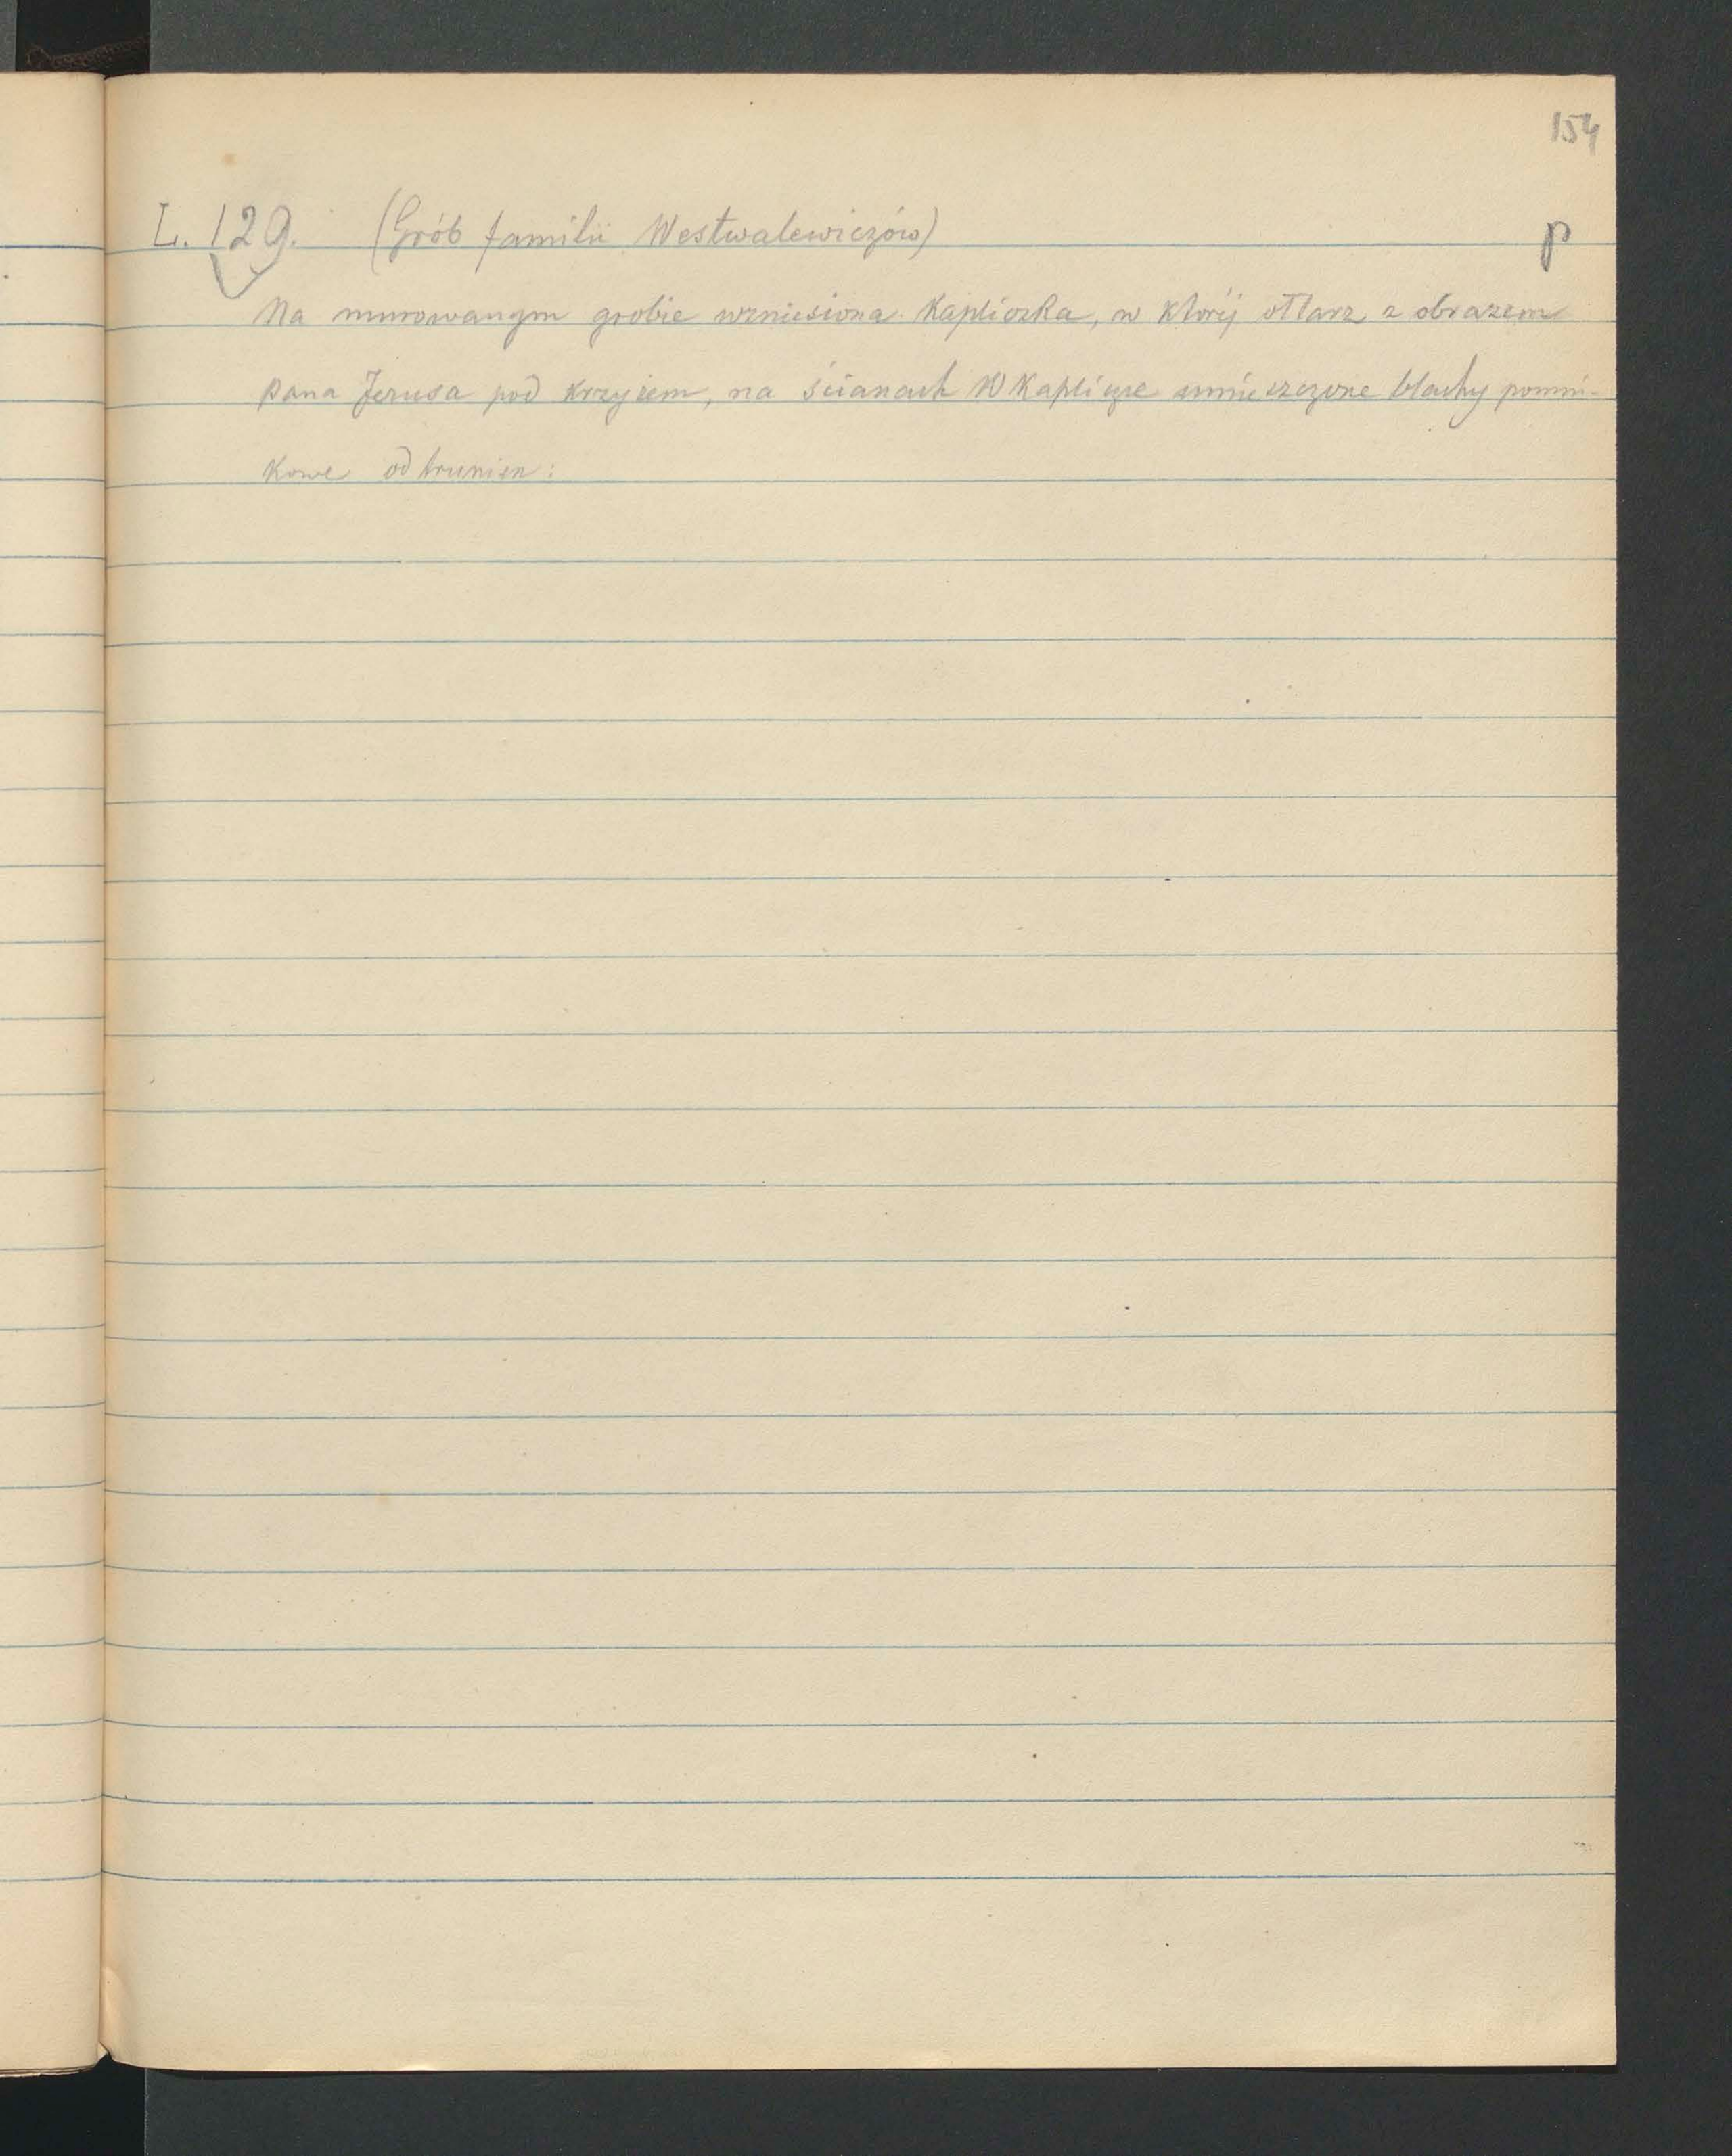 154
L. 129. (Grób familii Westwalewiczów) p
Na murowanym grobie wzniesiona Kapliczka, w której ołtarz z obrazem
Pana Jezusa pod krzyżem, na ścianach W Kaplicze umieszczone blachy pomni-
kowe od trumien: